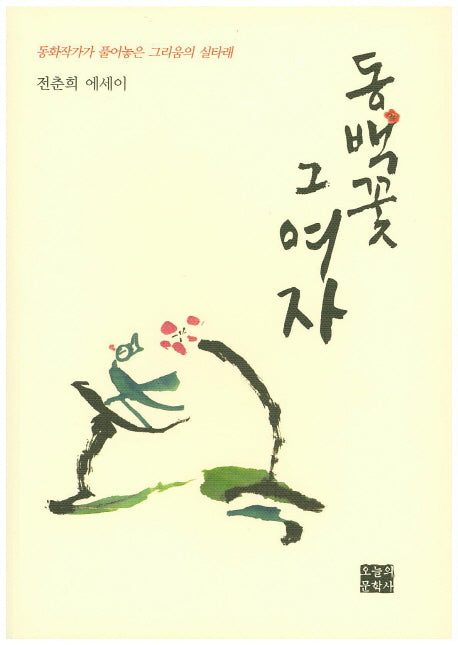 동화작가가 풀어놓은 그리움의 실타래
전춘희 에세이
동백꽃
그 여자
오늘의
문학사